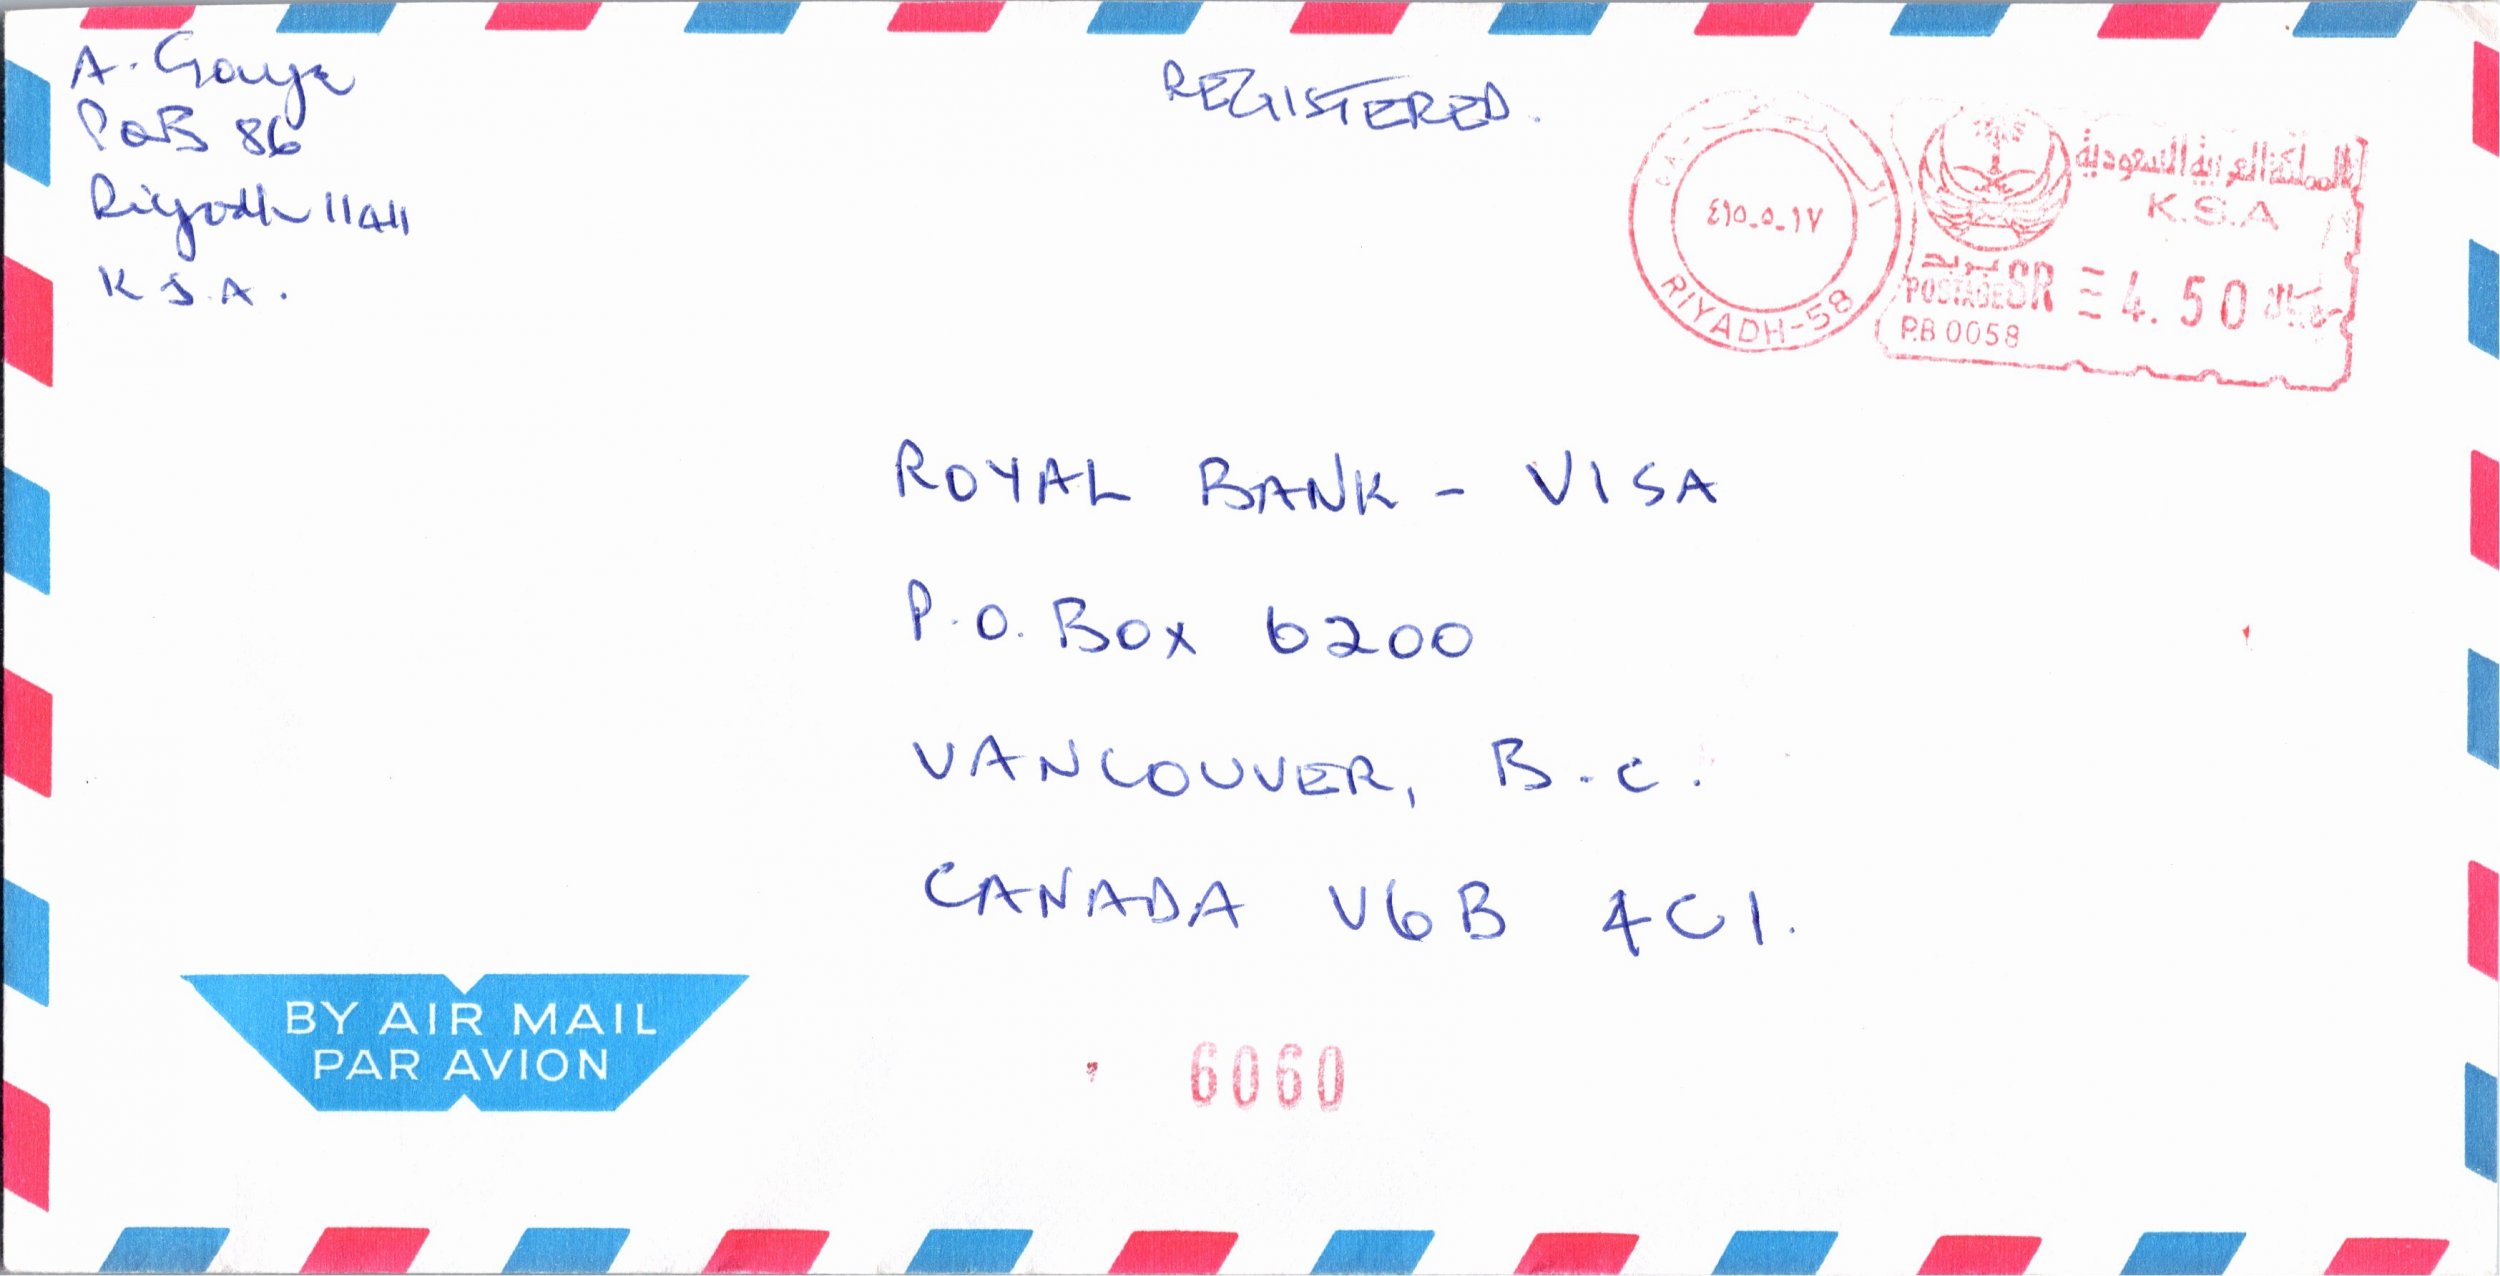 A.
POB 86
Riyadh 11411
K S.A.
REGISTERED.
المملكة العربية السعودية
K.S.A
٤١٥-٥-١٧
RIYADH-58
POSTAGE SR 4.50
P.B 0058
ROYAL BANK - VISA
P.O. BOX 6200
VANCOUVER, B.C.
CANADA V6B 4C1.
BY AIR MAIL
PAR AVION
6060